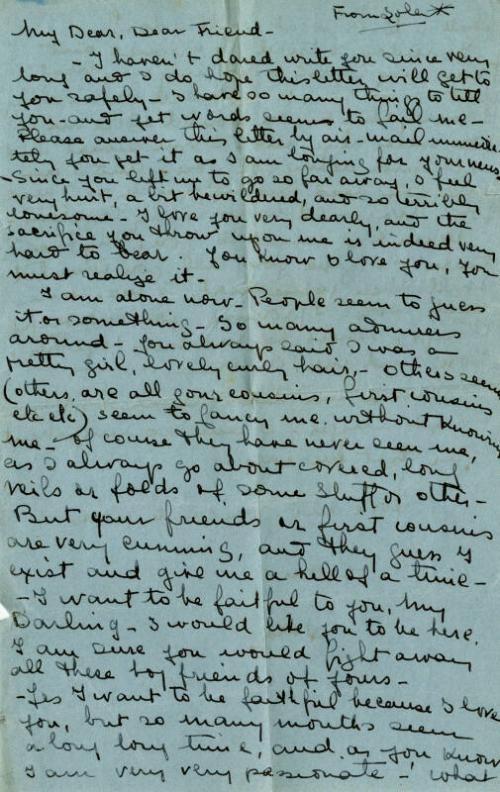 From Lola*
My Dear, Dear Friend -
- I haven't dared write you since very
long and I do hope this letter will get to
you safely - I have so many things to tell
you - and yet words seems to fail me -
Please answer this letter by air-mail immedia
tely you get it as I am longing for your news
- Since you left me to go so far away, I feel
very hurt, a bit bewildered, and so terribly
lonesome - I love you very dearly, and the
sacrifice you throw upon me is indeed very
hard to bear. You know I love you, you
must realize it -
I am alone now - People seem to guess
it or something - So many admirers
around - You always said I was a
pretty girl, lovely curly hair, - others seem
(others are all your cousins, first cousins
etc etc) seem to fancy me without knowing
me - of course they have never seen me,
as I always go about covered, long
veils or folds of some stuff or other -
But your friends or first cousins
are very cunning, and they guess I
exist and give me a hell of a time -
- I want to be faithful to you, my
Darling - I would like you to be here.
I am sure you would fight away
all these boy friends of yours -
- Yes I want to be faithful because I love
you, but so many months seem
a long long time, and as you know
I am very very passionate - what